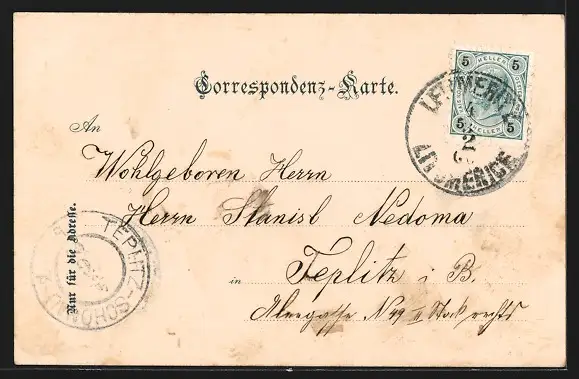 Correspondenz-Karte.
5 HELLER 5
5 HELLER 5
LEITMERITZ
2
LITOMĚŘICE
An
Wohlgeboren Herrn
Herrn Stanisl Nedoma
in Teplitz i B.
Alleegasse N 49 II Stock rechts
Nur für die Adresse.
TEPLITZ-SCHÖNAU